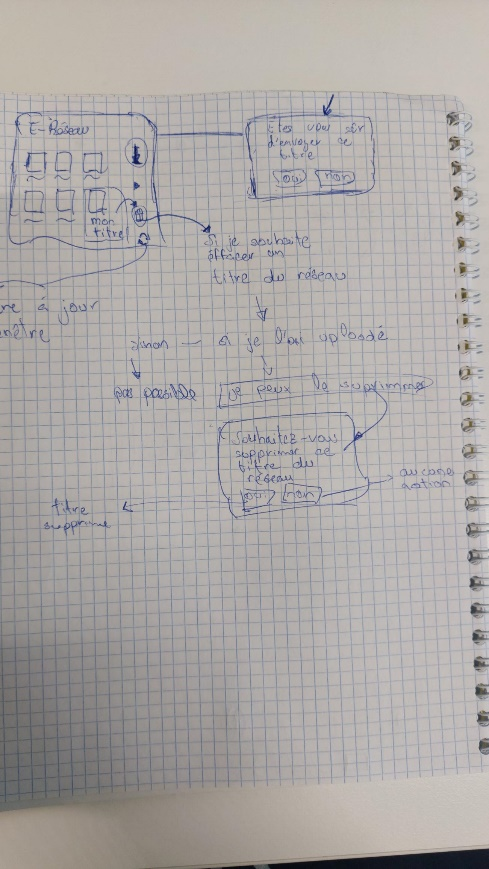 E-Réseau
mon
titre
Etes vous sûr
d'envoyer ce
titre
oui non
à jour
Si je souhaite
effacer un
titre du réseau
sinon — si je l'ai uploadé
pas possible
je peux le supprimer
Souhaitez-vous
supprimer ce
titre du
réseau
oui non
aucune
action
titre
supprimé